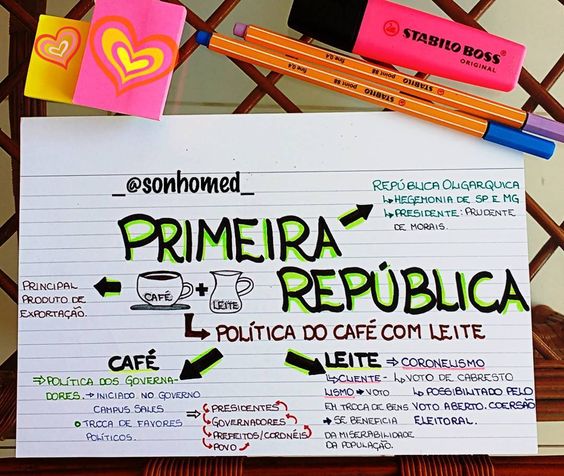 STABILO BOSS
ORIGINAL
STABILO point 88 fine 0,4
STABILO point 88 fine 0,4
_@sonhomed_
REPÚBLICA OLIGARQUICA
↳ HEGEMONIA DE SP E MG
↳ PRESIDENTE: PRUDENTE
DE MORAIS.
PRIMEIRA
REPÚBLICA
PRINCIPAL
PRODUTO DE
EXPORTAÇÃO.
CAFÉ + LEITE
↳ POLÍTICA DO CAFÉ COM LEITE
CAFÉ
⇒ POLÍTICA DOS GOVERNA-
DORES. → INICIADO NO GOVERNO
CAMPUS SALES
TROCA DE FAVORES
POLÍTICOS.
⇒ PRESIDENTES
GOVERNADORES
PREFEITOS/CORONÉIS
POVO
LEITE ⇒ CORONELISMO
↳ CLIENTE-
LISMO → VOTO
EM TROCA DE BENS
→ SE BENEFICIA
DA MISERABILIDADE
DA POPULAÇÃO.
↳ VOTO DE CABRESTO
↳ POSSIBILITADO PELO
VOTO ABERTO. COERSÃO
ELEITORAL.